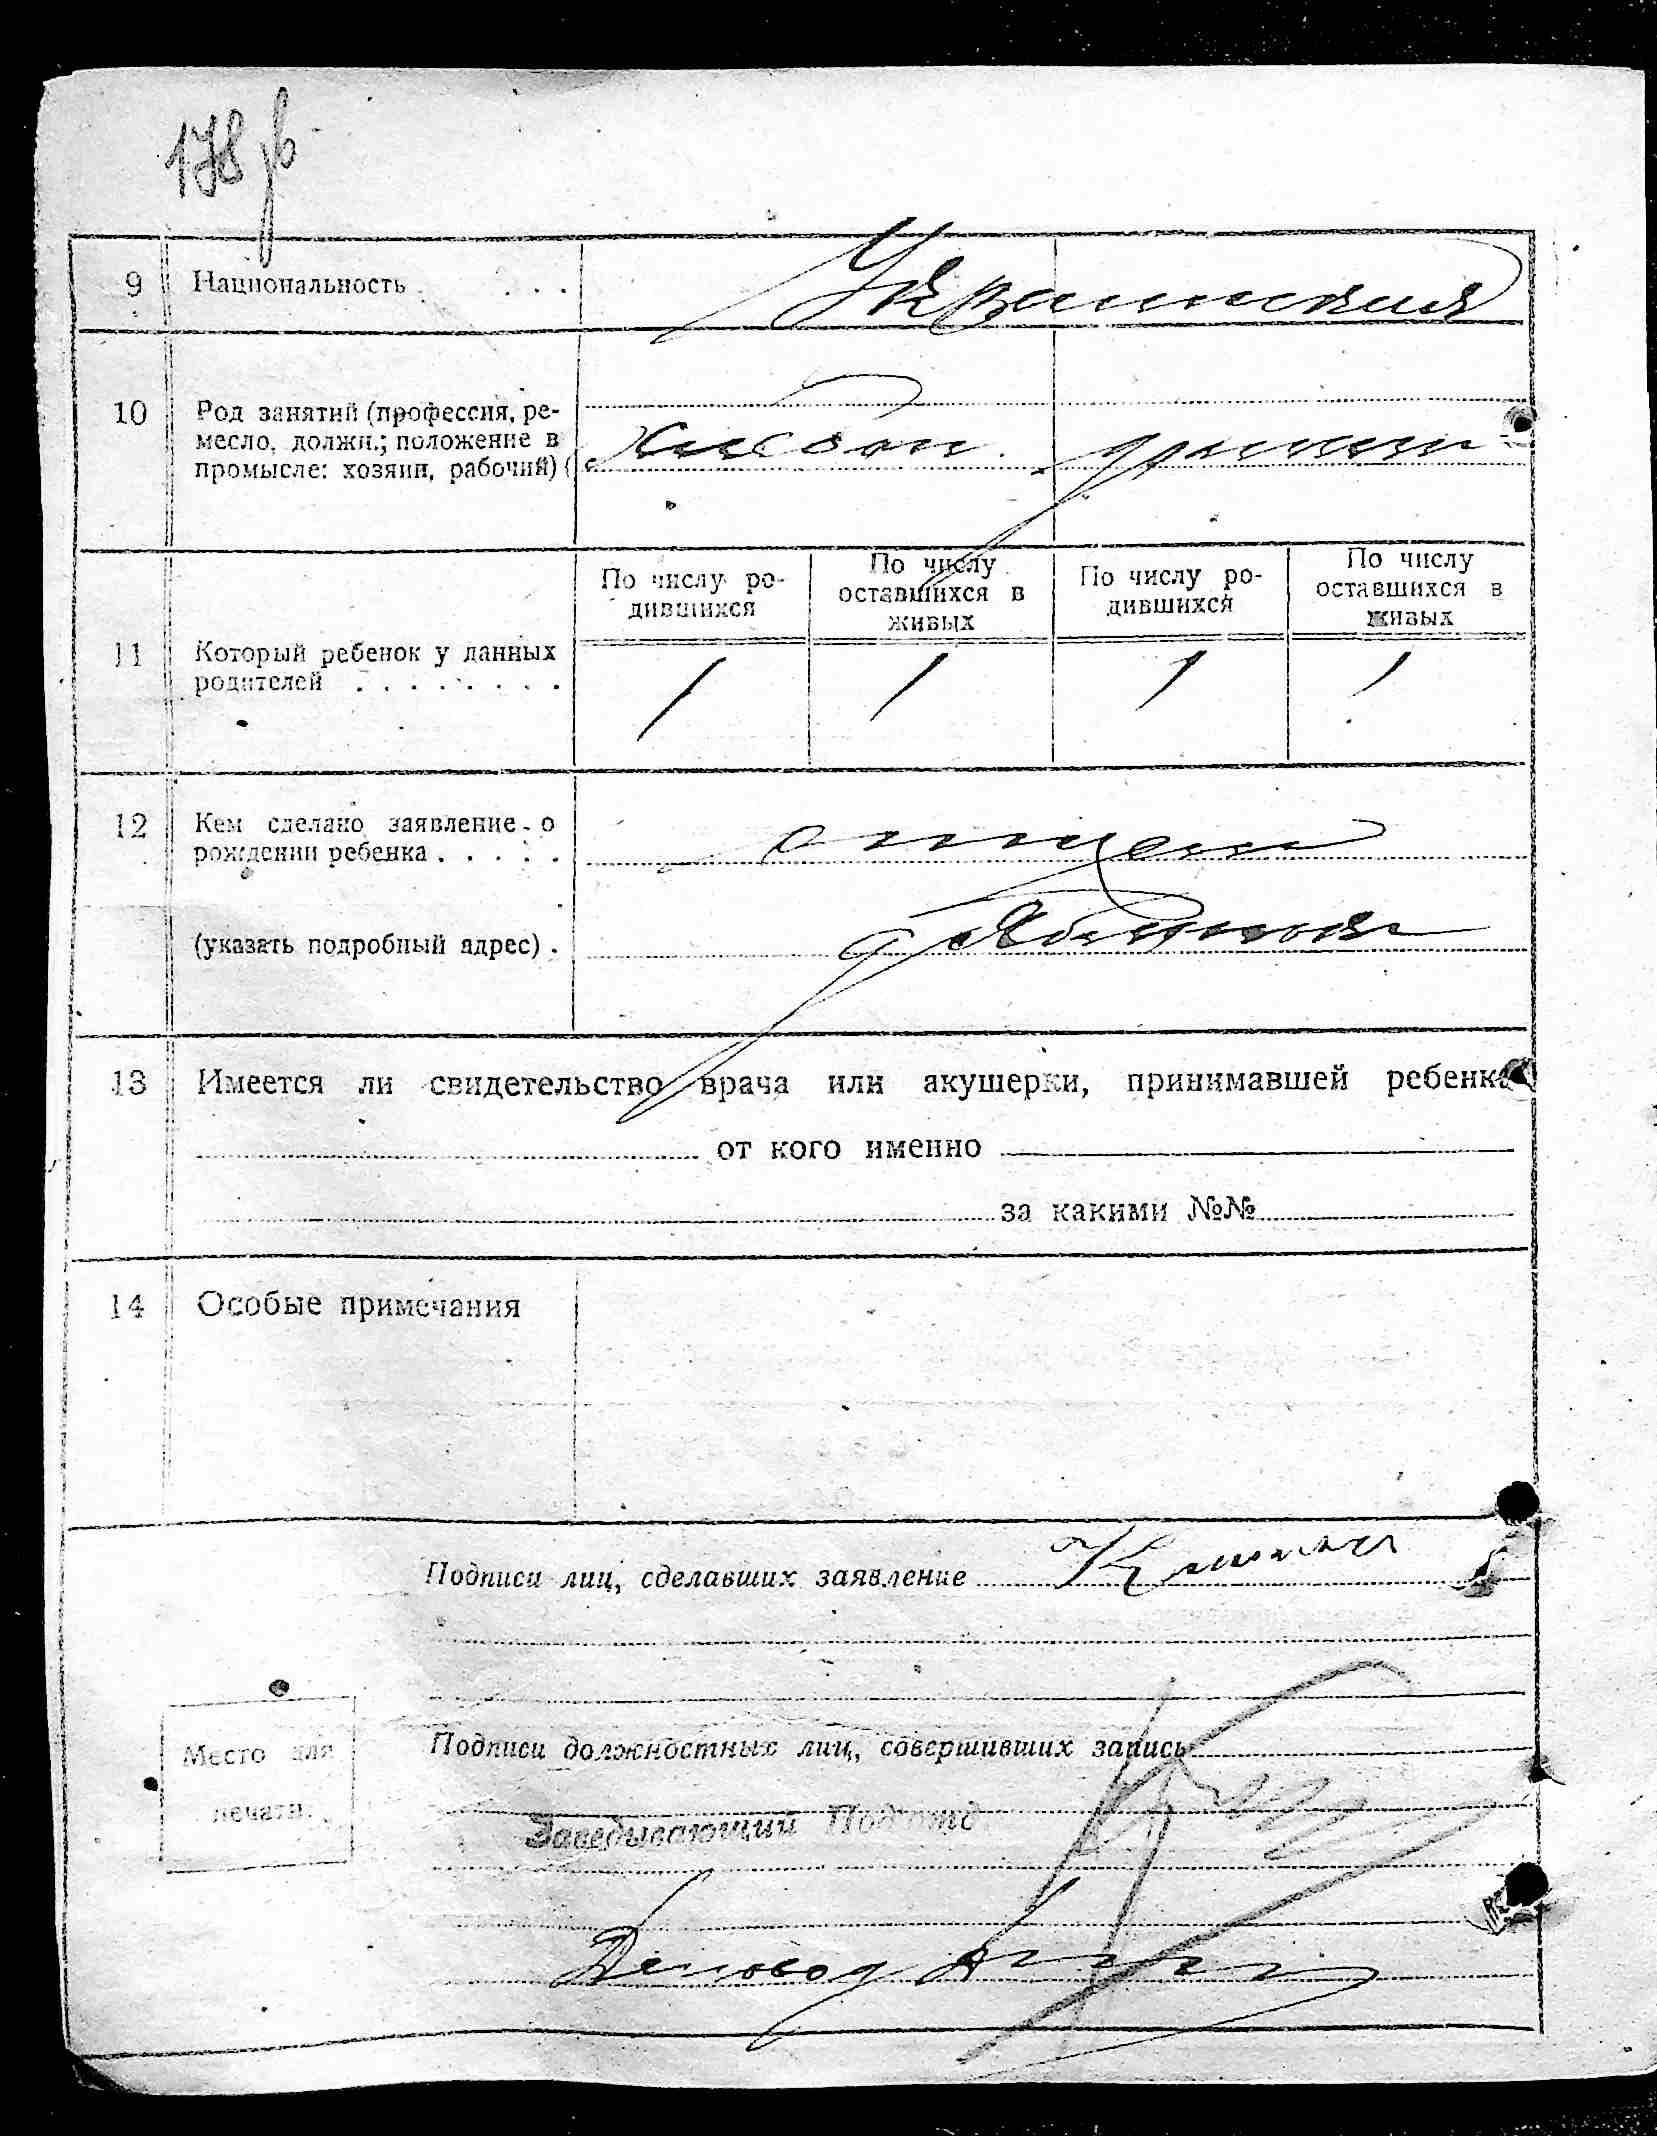 178 об
9 Национальность . . . . Украинская
10 Род занятий (профессия, ре-
месло, должн.; положение в
промысле: хозяин, рабочий)
По числу ро-
дившихся
По числу
оставшихся в
живых
По числу ро-
дившихся
По числу
оставшихся в
живых
11 Который ребенок у данных
родителей . . . . . . . .
1 1 1 1
12 Кем сделано заявление о
рождении ребенка . . . . . отцем
(указать подробный адрес) .
13 Имеется ли свидетельство врача или акушерки, принимавшей ребенка
от кого именно
за какими №№
14 Особые примечания
Подписи лиц, сделавших заявление
Место для
печати.
Подписи должностных лиц, совершивших запись
Заведывающий Подотд
Деловод